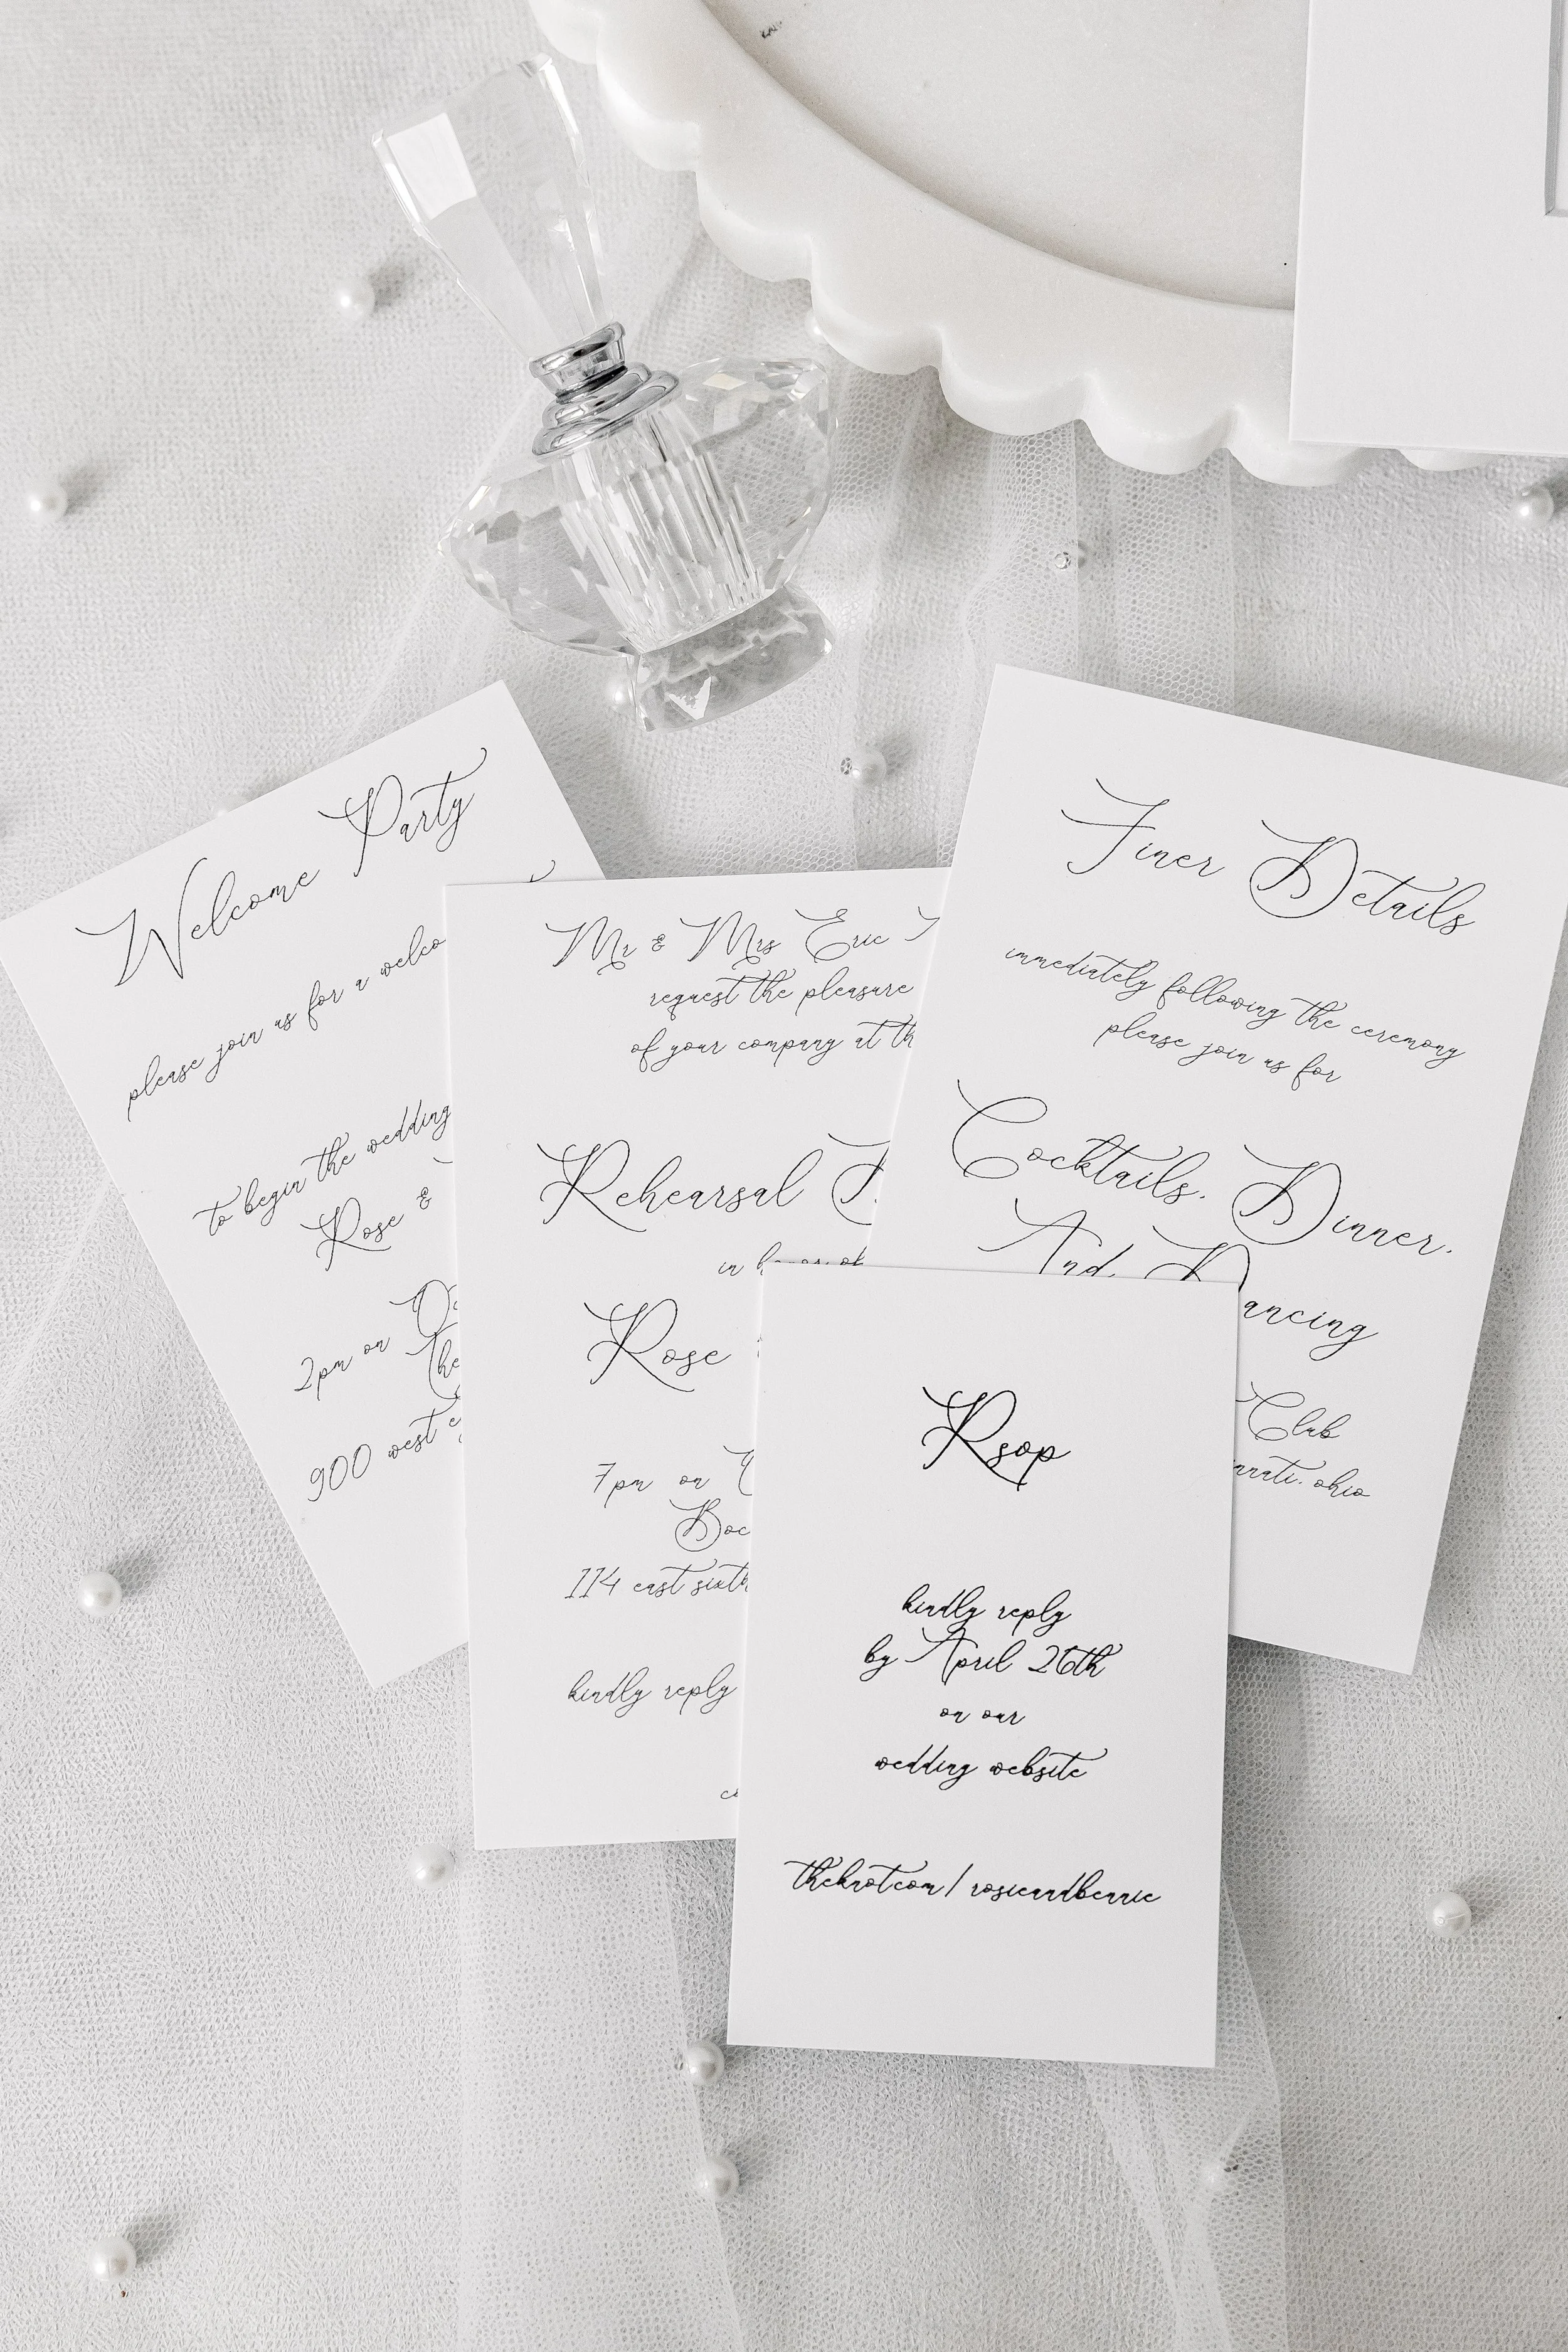 Welcome Party
please join us for a
to begin the wedding
Rose &
2pm on
900 west
Mr & Mrs Eric
request the pleasure
of your company at
Rehearsal
in honor of
Rose
7pm on
114 east sixth
kindly reply
Finer Details
immediately following the ceremony
please join us for
Cocktails, Dinner,
And Dancing
Club
ohio
Rsop
kindly reply
by April 26th
on our
wedding website
theknot.com/rosieandbennie